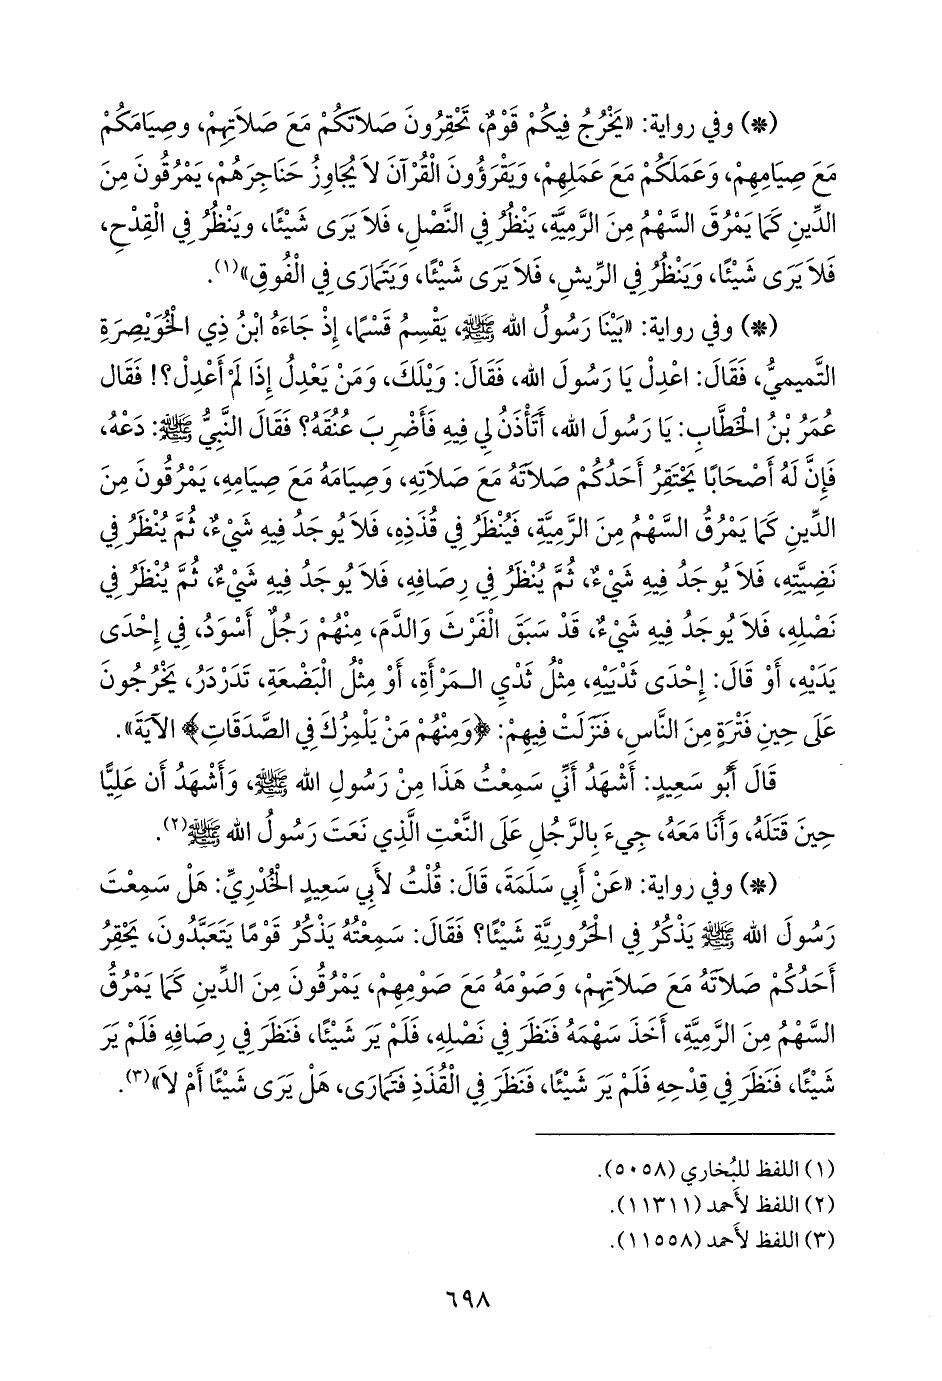 (*) وفي رواية: «يَخْرُجُ فِيكُمْ قَوْمٌ، تَحْقِرُونَ صَلاَتَكُمْ مَعَ صَلاَتِهِمْ، وصِيَامَكُمْ
مَعَ صِيَامِهِمْ، وَعَمَلَكُمْ مَعَ عَمَلِهِمْ، وَيَقْرَؤُونَ الْقُرْآنَ لاَ يُجَاوِزُ حَنَاجِرَهُمْ، يَمْرُقُونَ مِنَ
الدِّينِ كَمَا يَمْرُقَ السَّهْمُ مِنَ الرَّمِيَّةِ، يَنْظُرُ فِي النَّصْلِ، فَلاَ يَرَى شَيْئًا، وينْظُرُ فِي الْقِدْحِ،
فَلاَ يَرَى شَيْئًا، وَيَنْظُرُ فِي الرِّيشِ، فَلاَ يَرَى شَيْئًا، وَيَتَمَارَى فِي الْفُوقِ»(١).
(*) وفي رواية: «بَيْنَا رَسُولُ الله ﷺ، يَقْسِمُ قَسْمًا، إِذْ جَاءَهُ ابْنُ ذِي الْخُوَيْصِرَةِ
التَّمِيمِيُّ، فَقَالَ: اعْدِلْ يَا رَسُولَ الله، فَقَالَ: وَيْلَكَ، وَمَنْ يَعْدِلُ إِذَا لَمْ أَعْدِلْ؟! فَقَال
عُمَرُ بْنُ الْخَطَّابِ: يَا رَسُولَ الله، أَتَأْذَنُ لِي فِيهِ فَأَضْرِبَ عُنُقَهُ؟ فَقَالَ النَّبِيُّ ﷺ: دَعْهُ،
فَإِنَّ لَهُ أَصْحَابًا يَحْتَقِرُ أَحَدُكُمْ صَلاَتَهُ مَعَ صَلاَتِهِ، وَصِيَامَهُ مَعَ صِيَامِهِ، يَمْرُقُونَ مِنَ
الدِّينِ كَمَا يَمْرُقُ السَّهْمُ مِنَ الرَّمِيَّةِ، فَيُنْظَرُ فِي قُذَذِهِ، فَلاَ يُوجَدُ فِيهِ شَيْءٌ، ثُمَّ يُنْظَرُ فِي
نَضِيَّتِهِ، فَلاَ يُوجَدُ فِيهِ شَيْءٌ، ثُمَّ يُنْظَرُ فِي رِصَافِهِ، فَلاَ يُوجَدُ فِيهِ شَيْءٌ، ثُمَّ يُنْظَرُ فِي
نَصْلِهِ، فَلاَ يُوجَدُ فِيهِ شَيْءٌ، قَدْ سَبَقَ الْفَرْثَ وَالدَّمَ، مِنْهُمْ رَجُلٌ أَسْوَدُ، فِي إِحْدَى
يَدَيْهِ، أَوْ قَالَ: إِحْدَى ثَدْيَيْهِ، مِثْلُ ثَدْيِ الـمَرْأَةِ، أَوْ مِثْلُ الْبَضْعَةِ، تَدَرْدَرُ، يَخْرُجُونَ
عَلَى حِينِ فَتْرَةٍ مِنَ النَّاسِ، فَنَزَلَتْ فِيهِمْ: ﴿وَمِنْهُمْ مَنْ يَلْمِزُكَ فِي الصَّدَقَاتِ﴾ الآيَةَ».
قَالَ أَبُو سَعِيدٍ: أَشْهَدُ أَنِّي سَمِعْتُ هَذَا مِنْ رَسُولِ الله ﷺ، وَأَشْهَدُ أَن عَلِيًّا
حِينَ قَتَلَهُ، وَأَنَا مَعَهُ، جِيءَ بِالرَّجُلِ عَلَى النَّعْتِ الَّذِي نَعَتَ رَسُولُ الله ﷺ(٢).
(*) وفي رواية: «عَنْ أَبِي سَلَمَةَ، قَالَ: قُلْتُ لأَبِي سَعِيدٍ الْخُدْرِيِّ: هَلْ سَمِعْتَ
رَسُولَ الله ﷺ يَذْكُرُ فِي الْحَرُورِيَّةِ شَيْئًا؟ فَقَالَ: سَمِعْتُهُ يَذْكُرُ قَوْمًا يَتَعَبَّدُونَ، يَحْقِرُ
أَحَدُكُمْ صَلاَتَهُ مَعَ صَلاَتِهِمْ، وَصَوْمَهُ مَعَ صَوْمِهِمْ، يَمْرُقُونَ مِنَ الدِّينِ كَمَا يَمْرُقُ
السَّهْمُ مِنَ الرَّمِيَّةِ، أَخَذَ سَهْمَهُ فَنَظَرَ فِي نَصْلِهِ، فَلَمْ يَرَ شَيْئًا، فَنَظَرَ فِي رِصَافِهِ فَلَمْ يَرَ
شَيْئًا، فَنَظَرَ فِي قِدْحِهِ فَلَمْ يَرَ شَيْئًا، فَنَظَرَ فِي الْقُذَذِ فَتَمَارَى، هَلْ يَرَى شَيْئًا أَمْ لاَ»(٣).
(١) اللفظ للبُخاري (٥٠٥٨).
(٢) اللفظ لأَحمد (١١٣١١).
(٣) اللفظ لأَحمد (١١٥٥٨).
٦٩٨